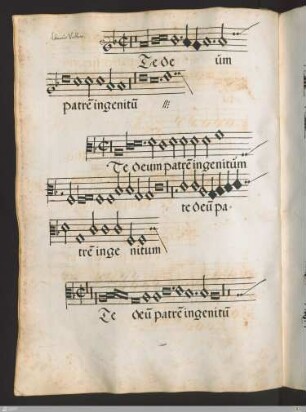 Te de üm
patrē ingenitū
Te deum patrē ingenitum
te deū pa-
trē inge nitum
Te deū patrē ingenitū